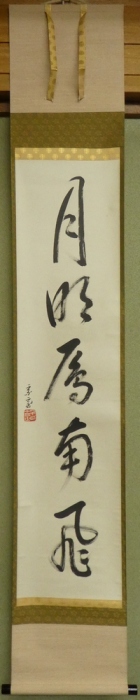 月明雁南飛